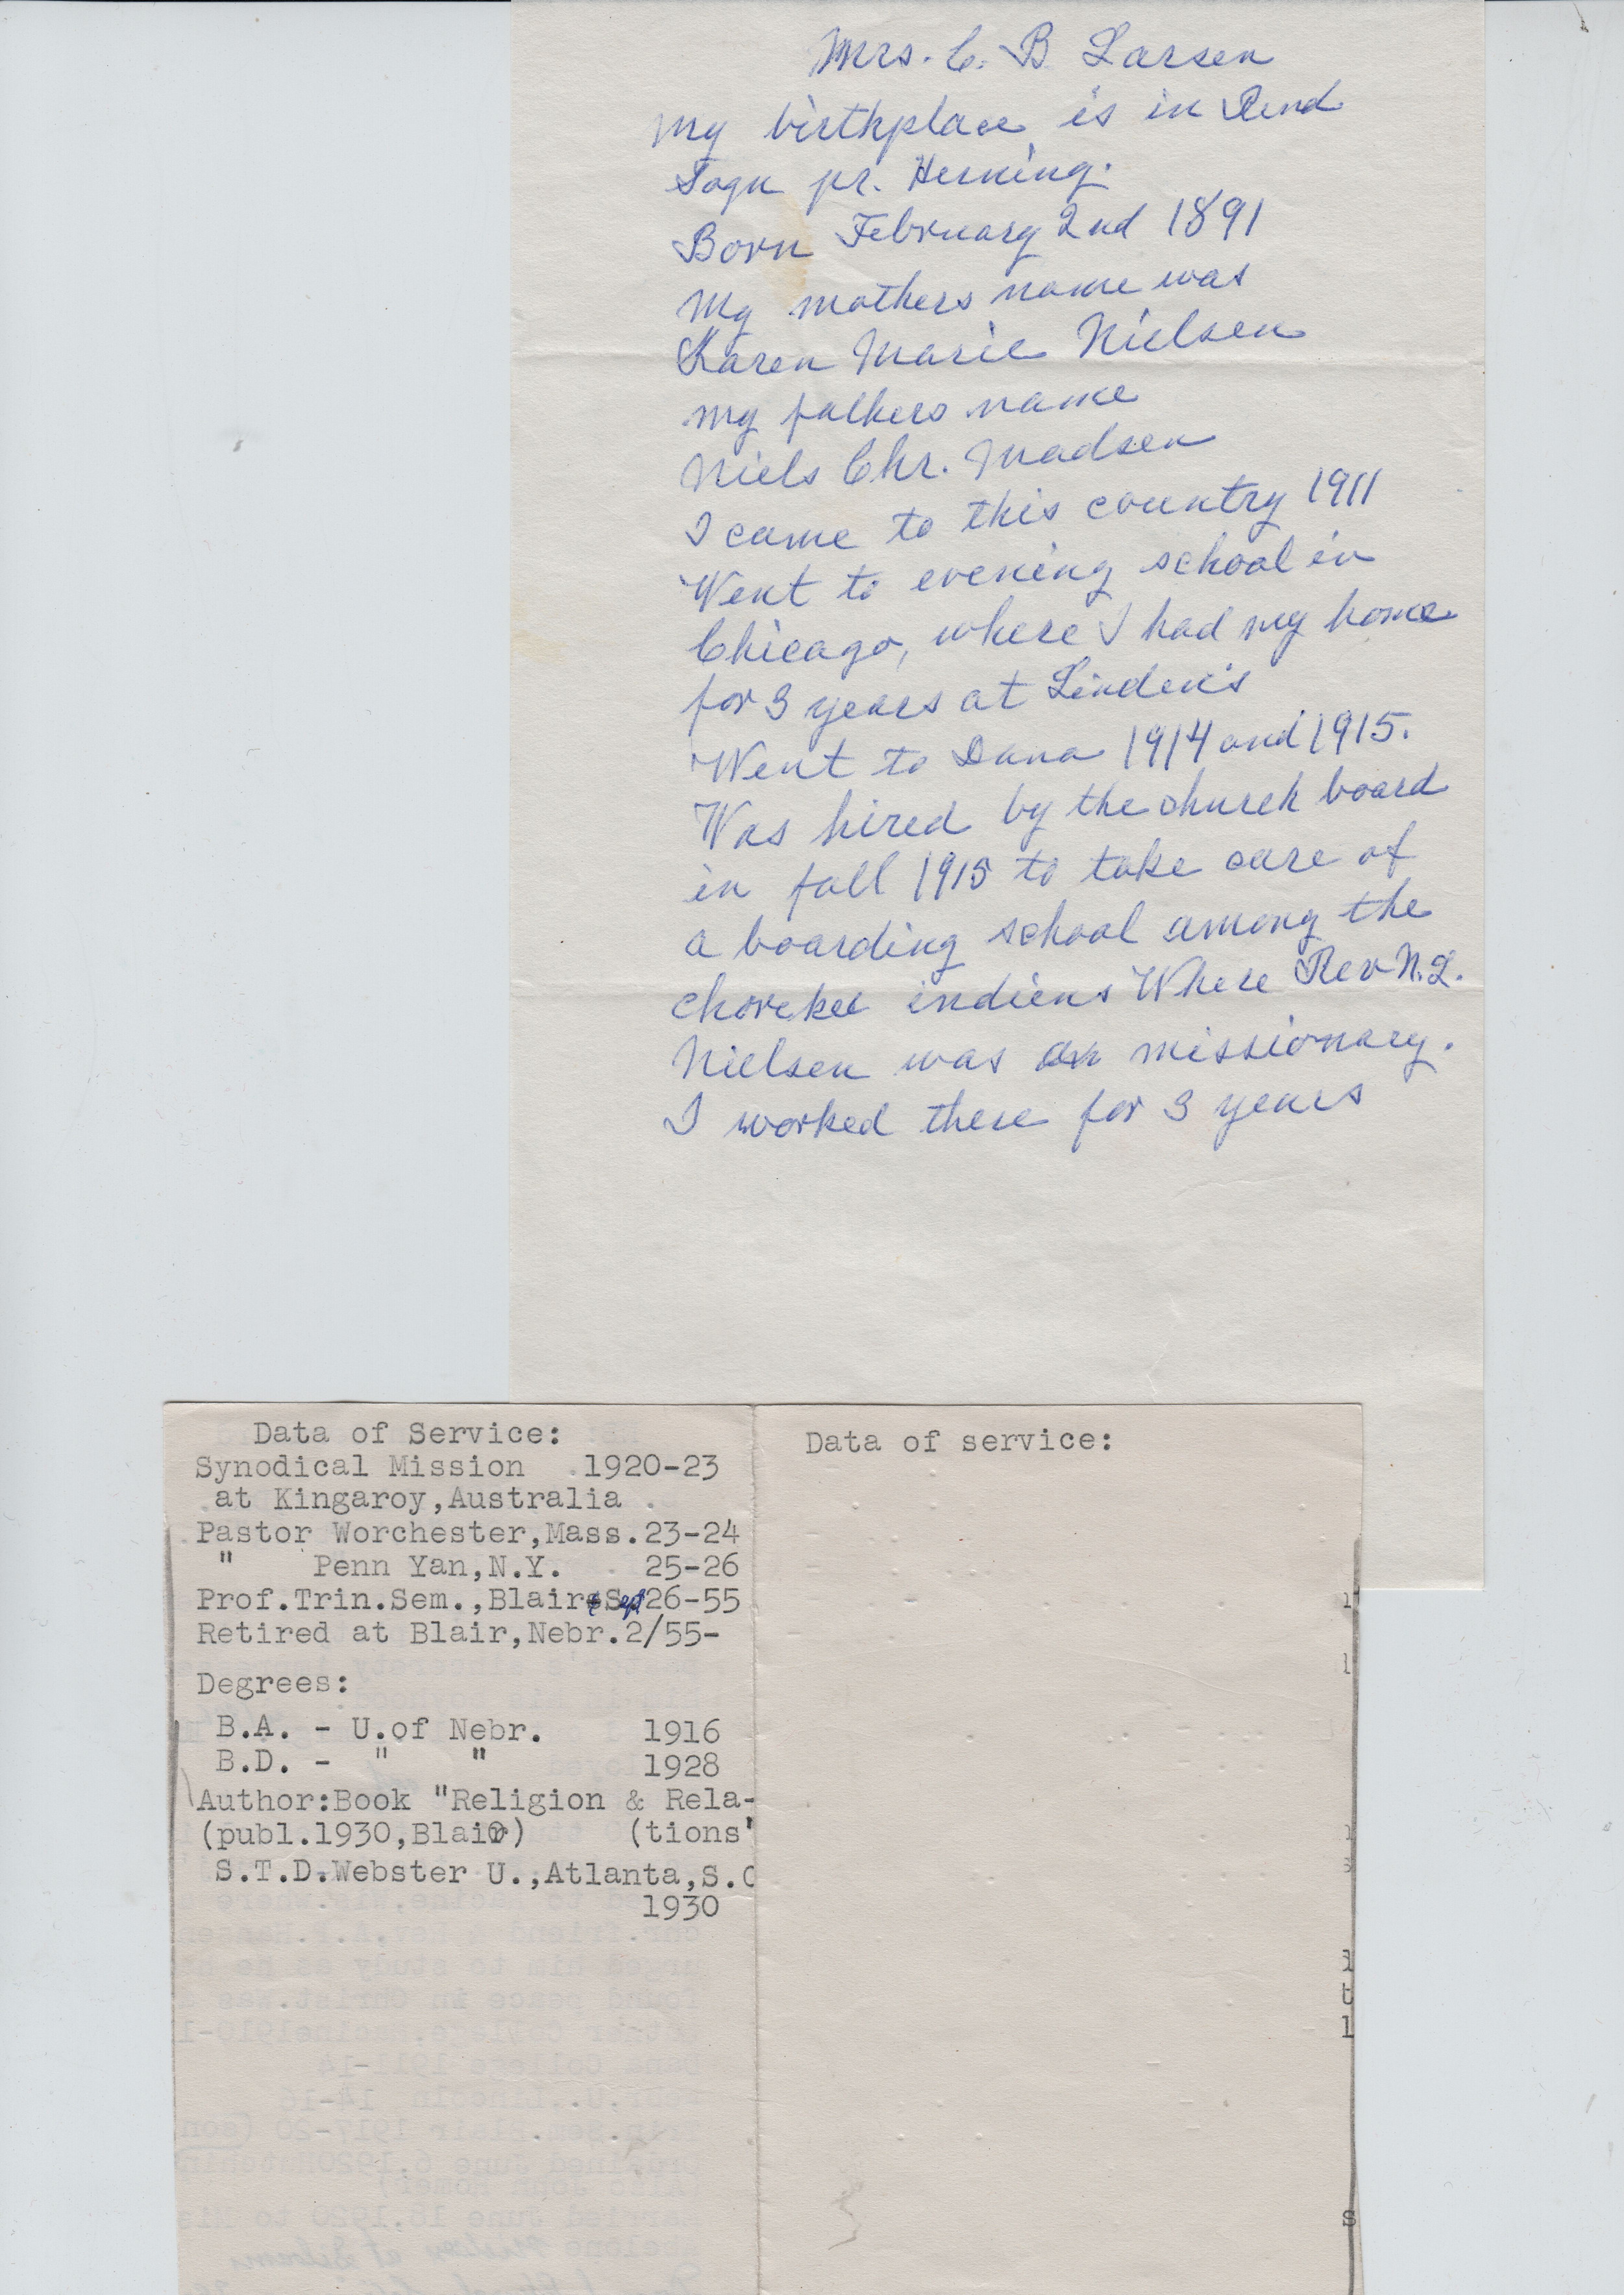 Mrs. C. B. Larsen
My birthplace is in Rind
Sogn pr. Herning.
Born February 2nd 1891
My mothers name was
Karen Marie Nielsen
my fathers name
Niels Chr. Madsen
I came to this country 1911
Went to evening school in
Chicago, where I had my home
for 3 years at Linden's
Went to Dana 1914 and 1915.
Was hired by the church board
in fall 1915 to take care of
a boarding school among the
cherekee indiens Where Rev N.L.
Nielsen was an missionary.
I worked there for 3 years
Data of Service:
Synodical Mission .1920-23
at Kingaroy,Australia .
Pastor Worchester,Mass.23-24
" Penn Yan,N.Y. 25-26
Prof.Trin.Sem.,Blair Sept 26-55
Retired at Blair,Nebr.2/55-
Degrees:
B.A. - U.of Nebr. 1916
B.D. - " " 1928
Author:Book "Religion & Rela-
(publ.1930,Blair) (tions"
S.T.D.Webster U.,Atlanta,S.C
1930
Data of service: